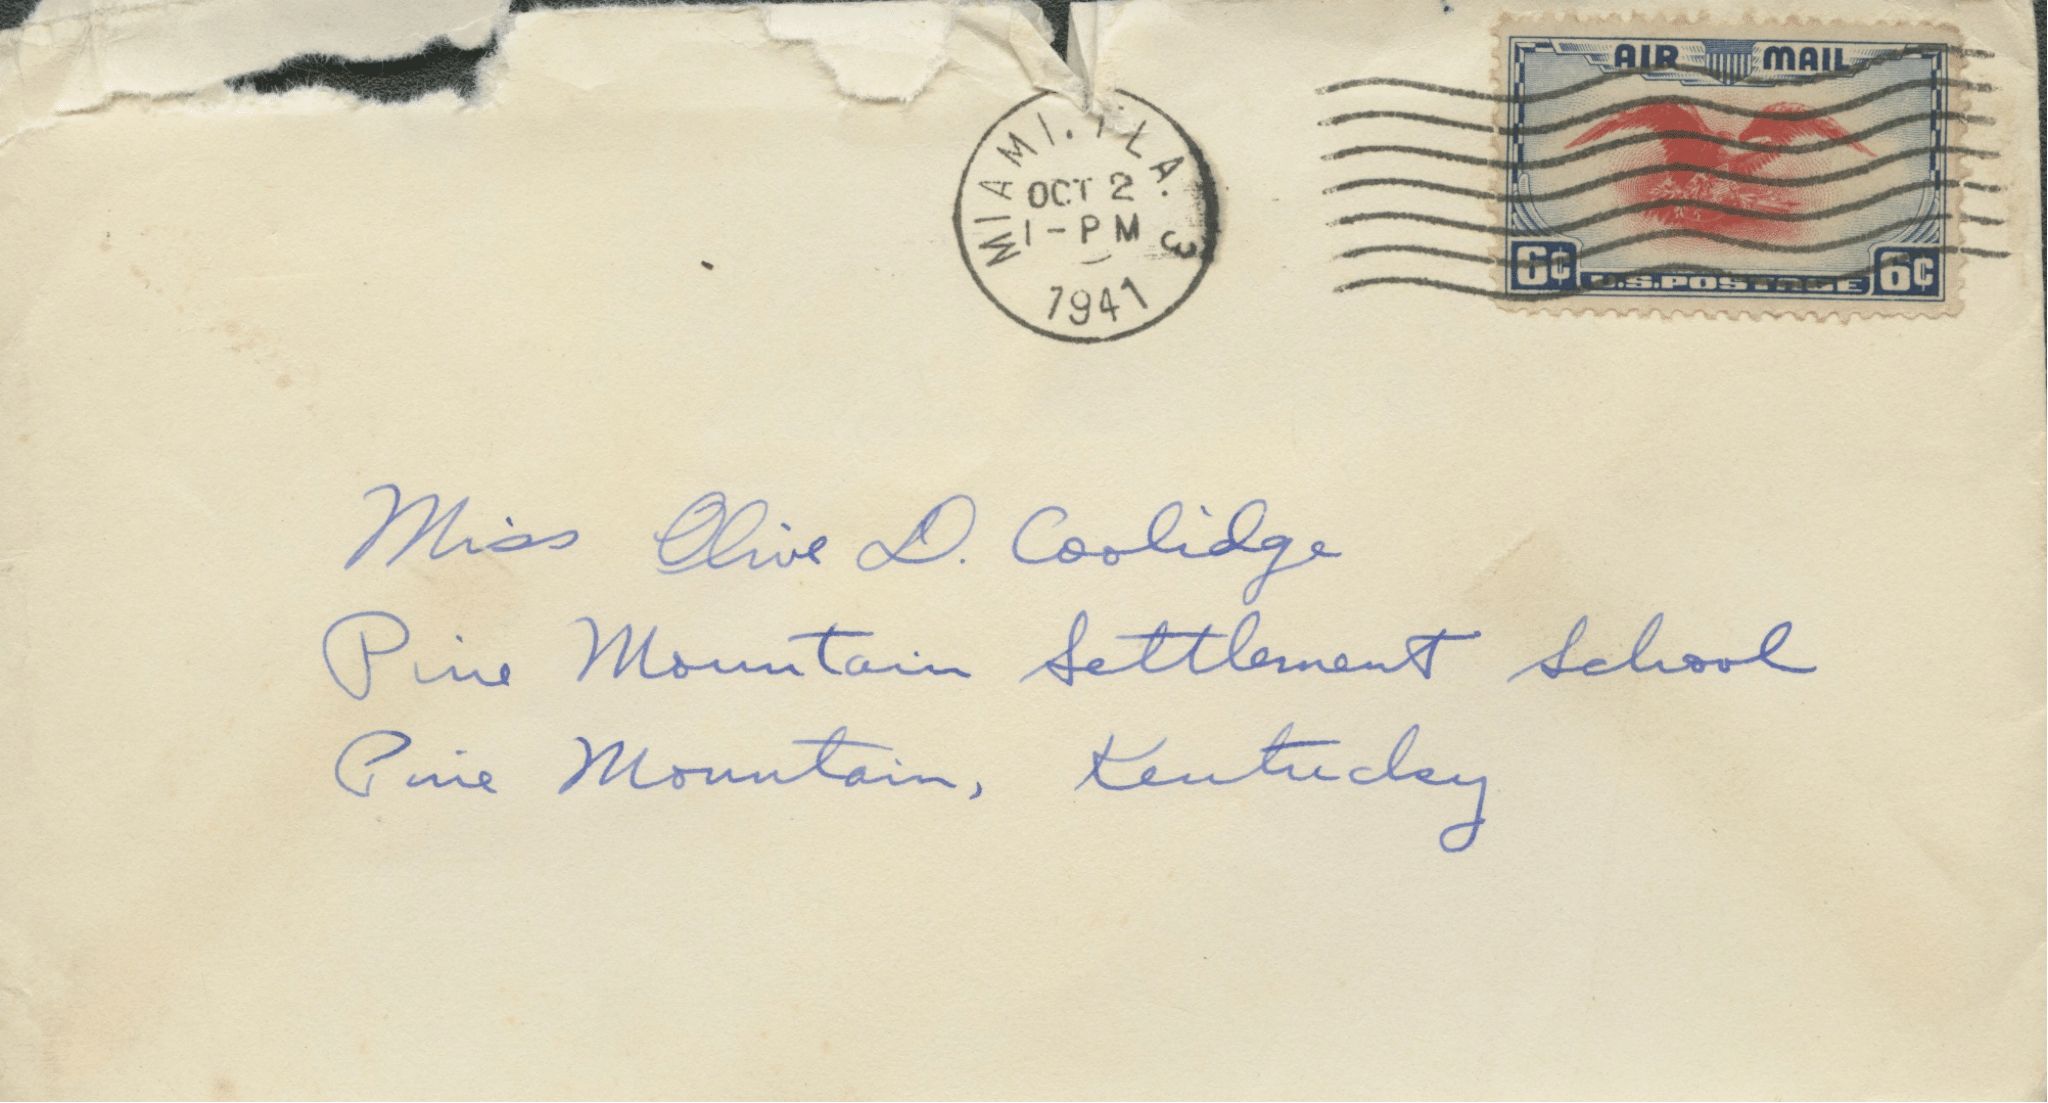 AIR MAIL
MIAMI, FLA. 3
OCT 2
1-PM
1941
6¢ U.S. POSTAGE 6¢
Miss Olive D. Coolidge
Pine Mountain Settlement School
Pine Mountain, Kentucky